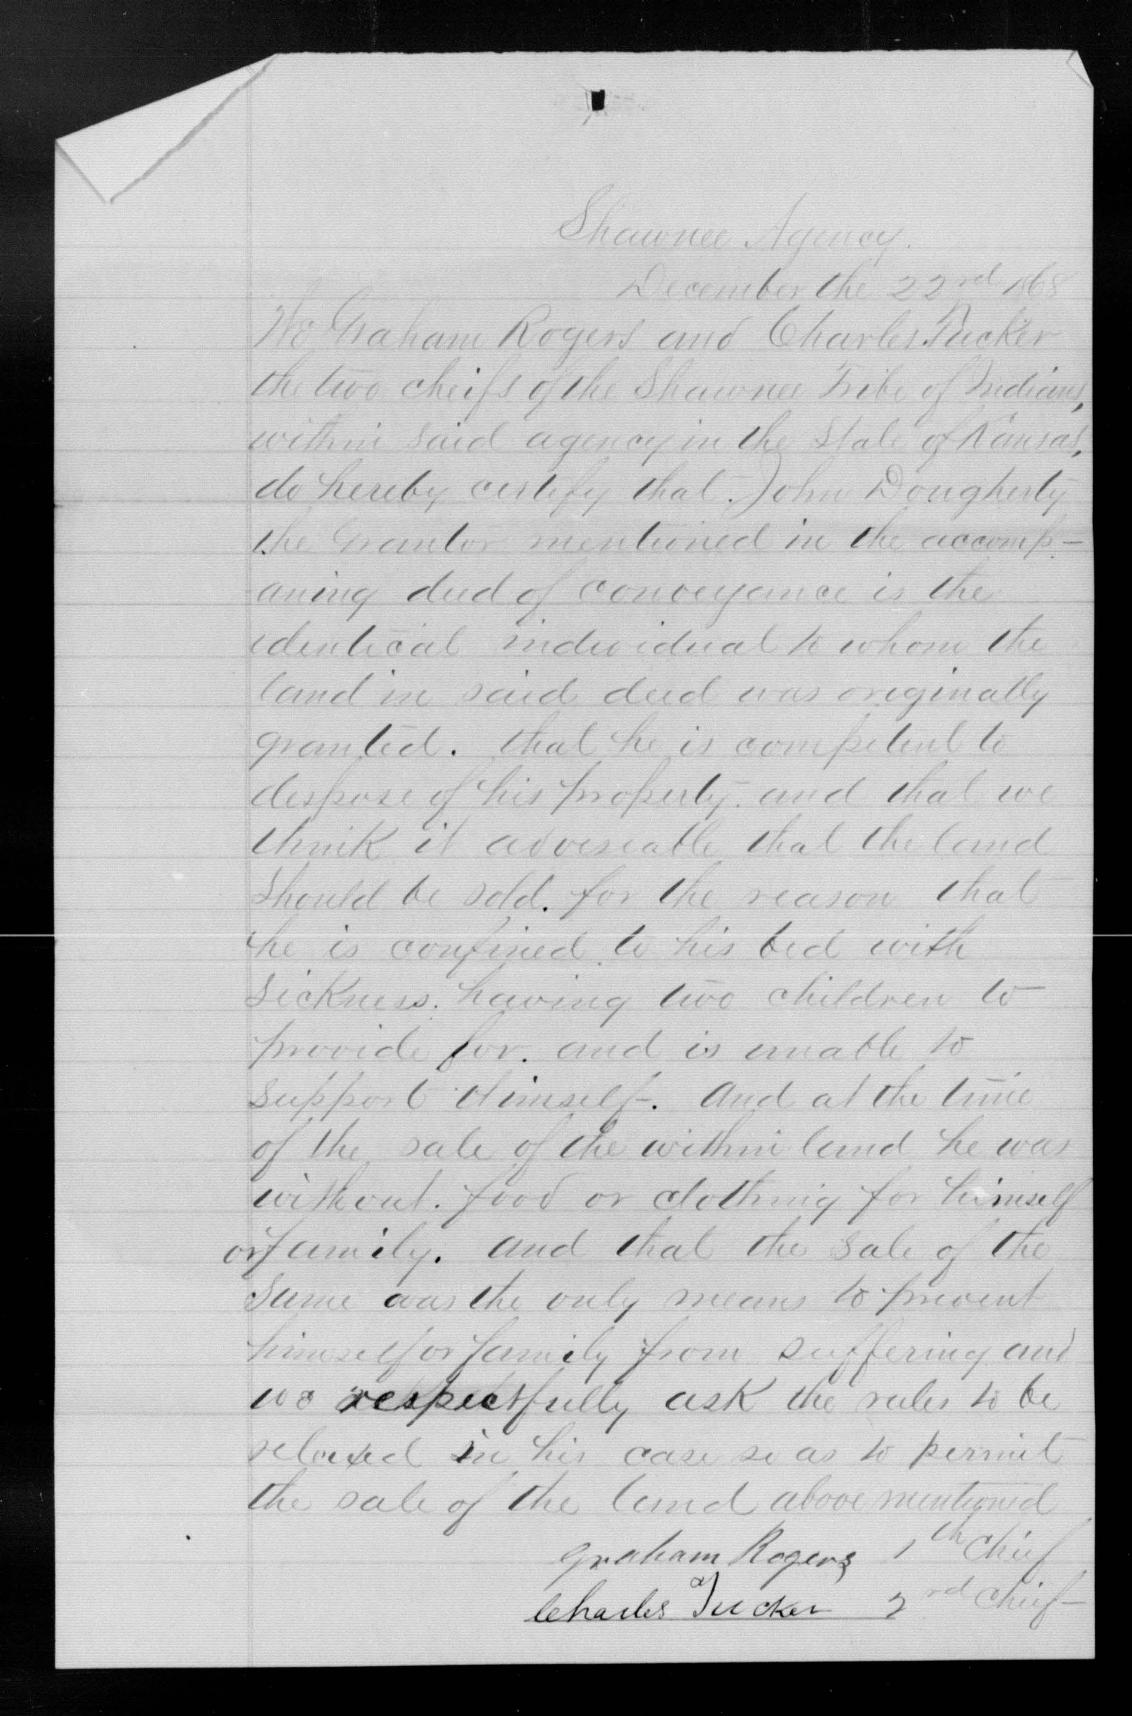 Shawnee Agency.
December the 22nd 1868
We Graham Rogers and Charles Tucker
the two cheifs of the Shawnee Tribe of Indians,
within said agency in the State of Kansas,
do hereby certify that John Dougherty
the Grantor mentioned in the accomp-
aning deed of conveyance is the
identical individual to whom the
land in said deed was originally
granted. that he is competent to
despose of his property. and that we
think it adviseable that the land
should be sold. for the reason that
he is confined to his bed with
sickness. having two children to
provide for. and is unable to
support Himself. and at the time
of the sale of the within land he was
without. food or clothing for himself
or family. and that the sale of the
same was the only means to prevent
himself or family from suffering and
we respectfully ask the rules to be
relaxed in his case so as to permit
the sale of the land above mentioned
Graham Rogers 1th Chief
Charles Tucker 2rd Chief